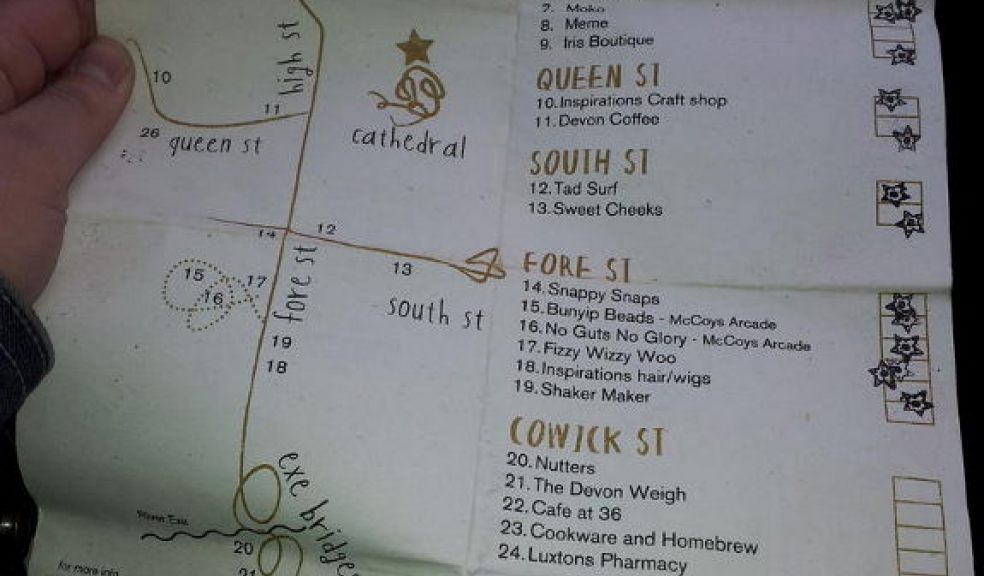 high st
10
11
26
queen st
cathedral
14
12
13
south st
15
16
17
fore st
19
18
exe bridges
River Exe
20
21
for more info
7. Moko
8. Meme
9. Iris Boutique
QUEEN ST
10. Inspirations Craft shop
11. Devon Coffee
SOUTH ST
12. Tad Surf
13. Sweet Cheeks
FORE ST
14. Snappy Snaps
15. Bunyip Beads - McCoys Arcade
16. No Guts No Glory - McCoys Arcade
17. Fizzy Wizzy Woo
18. Inspirations hair/wigs
19. Shaker Maker
COWICK ST
20. Nutters
21. The Devon Weigh
22. Cafe at 36
23. Cookware and Homebrew
24. Luxtons Pharmacy